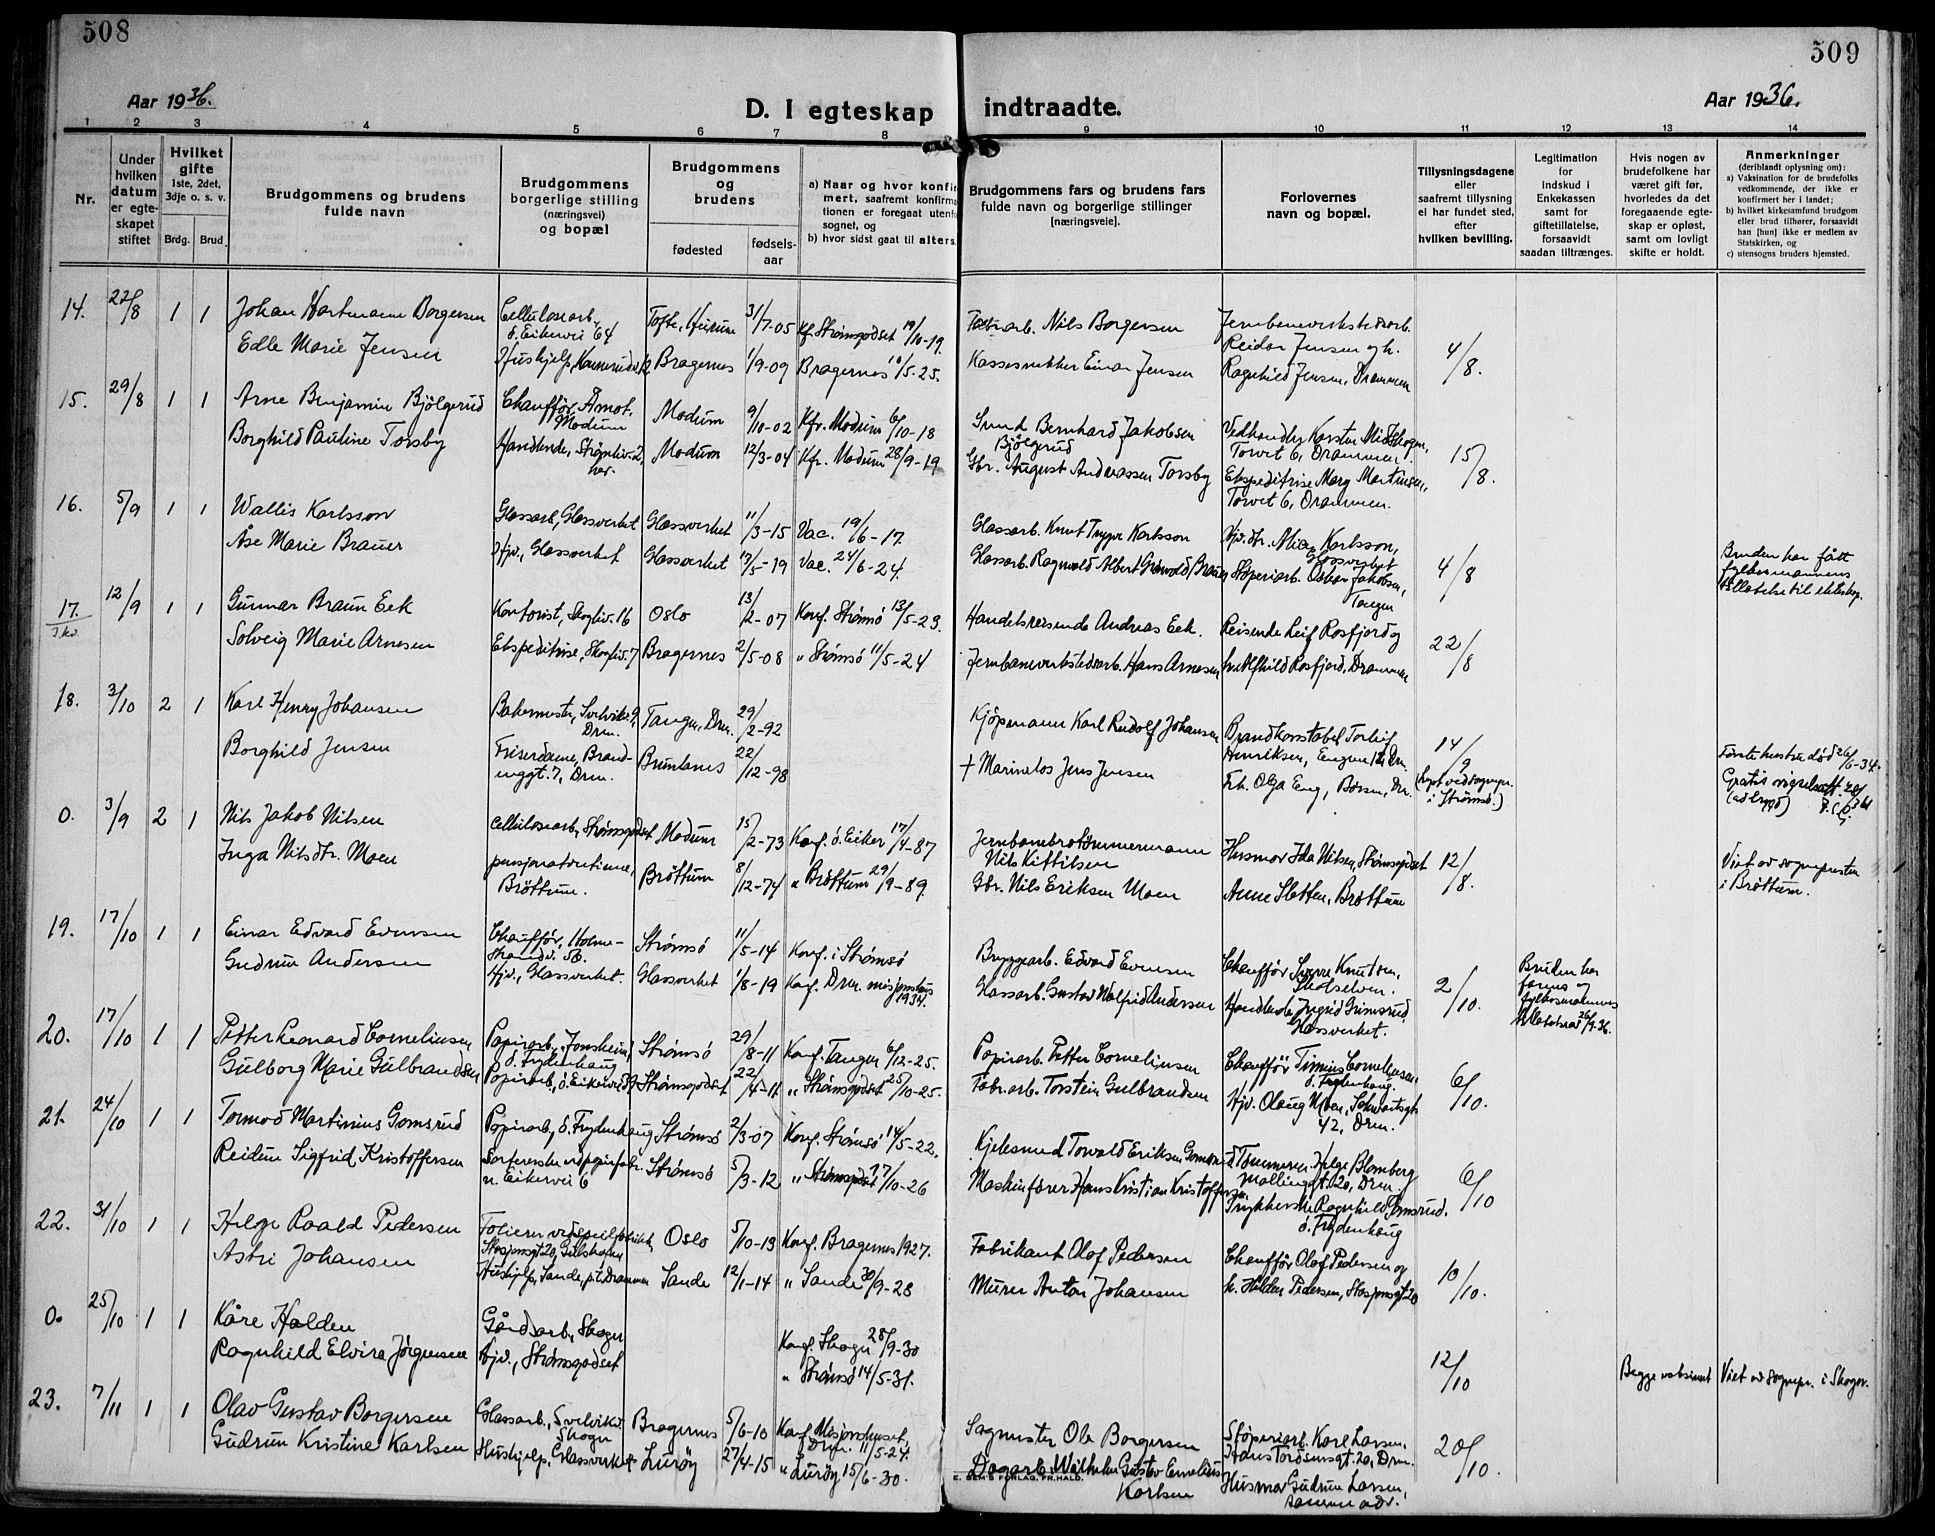 508
509
Aar 1936.
D. I egteskap indtraadte.
Aar 1936.
1 2 3 4 5 6 7 8 9 10 11 12 13 14
Nr.
Under hvilken datum er egte-skapet stiftet
Hvilket gifte 1ste, 2det, 3dje o. s. v.
Brdg. Brud.
Brudgommens og brudens fulde navn
Brudgommens borgerlige stilling (næringsvei) og bopæl
Brudgommens og brudens
fødested
fødsels-aar
a) Naar og hvor konfirmert, saafremt konfirmationen er foregaat utenfor sognet, og
b) hvor sidst gaat til alters.
Brudgommens fars og brudens fars fulde navn og borgerlige stillinger [næringsveie].
Forlovernes navn og bopæl.
Tillysningsdagene eller saafremt tillysning ei har fundet sted, efter hvilken bevilling.
Legitimation for indskud i Enkekassen samt for giftetillatelse, forsaavidt saadan tiltrænges.
Hvis nogen av brudefolkene har været gift før, hvorledes da det foregaaende egte-skap er opløst, samt om lovligt skifte er holdt.
Anmerkninger (deriblandt oplysning om):
a) Vaksination for de brudefolks vedkommende, der ikke er konfirmert her i landet;
b) hvilket kirkesamfund brudgom eller brud tilhører, forsaavidt han [hun] ikke er medlem av Statskirken, og
c) utensogns bruders hjemsted.
14. 22/8 1 1 Johan Hartmann Borgersen Cellulosearb. ö. Eikervei 64 Tofte, Hurum 31/7-05 Kf. Strømsgodset 19/10-19. Nils Borgersen Jernbaneverkstedsarb. Reidar Jensen og h. 4/8.
Edle Marie Jensen Hushjelp, Bragernes 1/9-09 Bragernes 10/5-25. Einar Jensen Ragnhild Jensen, Drammen
15. 29/8 1 1 Arne Benjamin Bjölgerud Chauffør, Åmot, Modum Modum 9/10-02 Kfr. Modum 6/10-18 Smed Bernhard Jakobsen Bjölgerud Torvet 6, Drammen. 15/8.
Borghild Pauline Torsby Modum 12/3-04 Kfr. Modum 28/9-19 Gbr. August Andreassen Torsby Ekspeditrise Marg Martinsen, Torvet 6, Drammen.
16. 5/9 1 1 Wallis Karlsson Glassarb., Glassverket Glassverket 11/3-15 Vac. 19/6-17. Glassarb. Knut Trygve Karlsson Karlsson, Glassverket 4/8
Åse Marie Brauer Hjv., Glassverket Glassverket 17/5-19 Vac. 24/6-24. Glassarb. Ragnvald Albert Brauer Støperiarb. Oskar Jakobsen, Tangen Bruden har fått fylkesmannens tillatelse til ekteskap.
17. 12/9 1 1 Gunnar Braun Eek Kontorist, Skogliv. 16 Oslo 13/2-07 Konf. Strømsö 13/5-23. Handelsreisende Andreas Eek. Reisende Leif Rosfjord og 22/8
Solveig Marie Arnesen Ekspeditrise, Skogliv. 7 Bragernes 2/5-08 " Strømsö 11/5-24 Jernbaneverkstedsarb. Hans Arnesen fru Alfhild Rosfjord, Drammen
18. 3/10 2 1 Karl Henry Johansen Bakermester, Svelvikv. 9, Drm. Tangen, Drm. 29/2-92 Kjöpmann Karl Rudolf Johansen Brandkonstabel Torleif Henriksen, Drm. 14/9
Borghild Jensen Friserdame, Drm. Brunlanes 22/12-98 + Marinelos Jens Jensen Frk. Olga Eng, Børsen, Dr. (lyst ved sognepr. i Strømsø.) Første hustru död 26/6-34. Gratis
0. 3/9 2 1 Nils Jakob Nilsen Cellulosearb., Strømsgodset Modum 15/2-73 Konf. ö. Eiker 17/4-87 Jernbanebrotømmermann Nils Kittilsen Husmor Ida Nilsen, Strømsgodset 12/8.
Inga Nilsdtr. Moen Brøttum. Brøttum 8/12-74 " Brøttum 29/9-89. Gbr. Nils Eriksen Moen Anne Sletten, Brøttum Viet av sognepresten i Brøttum.
19. 17/10 1 1 Einar Edvard Evensen Chauffør, Holme-strandv. Strømsö 11/5-14 Konf. i Strømsö Bryggearb. Edvard Evensen Chauffør Sverre Knutsen, Skotselven. 2/10. Bruden har fylkesmannens tillatelse 26/9.36.
Gudrun Andersen Hjv., Glassverket. Glassverket 1/8-19 Konf. Drm. misjonshus 1934. Glassarb. Gustav Valfrid Andersen Ingrid Grimsrud, Glassverket.
20. 17/10 1 1 Petter Leonard Cornelinsen Papirarb., ö. Frydenhaug Strømsö 29/8-11 Konf. Tangen 6/12-25. Papirarb. Petter Cornelinsen Chauffør Cornelinsen, ö. Frydenhaug. 6/10.
Gulborg Marie Gulbrandsen Papirarb., ö. Eikervei Strømsgodset 22/4-11 " Strømsgodset 25/10-25. Fabr.arb. Torstein Gulbrandsen Hjv. Olaug Moen, 42, Drm.
21. 24/10 1 1 Tormod Martinius Gomsrud Papirarb., ö. Frydenhaug Strømsö 2/3-07 Konf. Strømsö 14/5-22. Kjelesmed Torvald Eriksen Gomsrud Tömmerm. Helge Blomberg Møllingt. 20, Drm. 6/10
Reidun Sigfrid Kristoffersen n. Eikervei 6 Strømsö 5/3-12 " Strømsgodset 17/10-26 Maskinfører Hans Kristian Kristoffersen Trykkerske Ragnhild Gomsrud, ö. Frydenhaug
22. 31/10 1 1 Helge Roald Pedersen Oslo 5/10-13 Konf. Bragernes 1927. Fabrikant Olaf Pedersen Chauffør Olaf Pedersen og 10/10.
Astri Johansen Hushjelp, Sande, p.t. Drammen Sande 12/1-14 " Sande 30/9-28 Murer Anton Johansen h. Hilda Pedersen,
0. 25/10 1 1 Kåre Halden Gårdsarb., Skoger Konf. Skoger 28/9-30 12/10
Ragnhild Elvira Jörgensen Hjv., Strømsgodset " Strømsö 14/5-31. Begge Viet av sognepr. i Skoger.
23. 7/11 1 1 Olav Gustav Borgersen Glassarb., Svelvikv. Skoger Bragernes 5/6-10 Konf. Misjonshuset, Drm. 11/5-24. Sagmester Ole Borgersen Støperiarb. Karl Larsen, Hans Tordsensgt. 20, Drm. 20/10.
Gudrun Kristine Karlsen Hushjelp, Glassverket Lurøy 27/4-15 " Lurøy 15/6-30. Dagarb. Wilhelm Gustav Emelius Karlsen Husmor Gudrun Larsen, samme adr.
E. SEM'S FORLAG, FR.HALD.